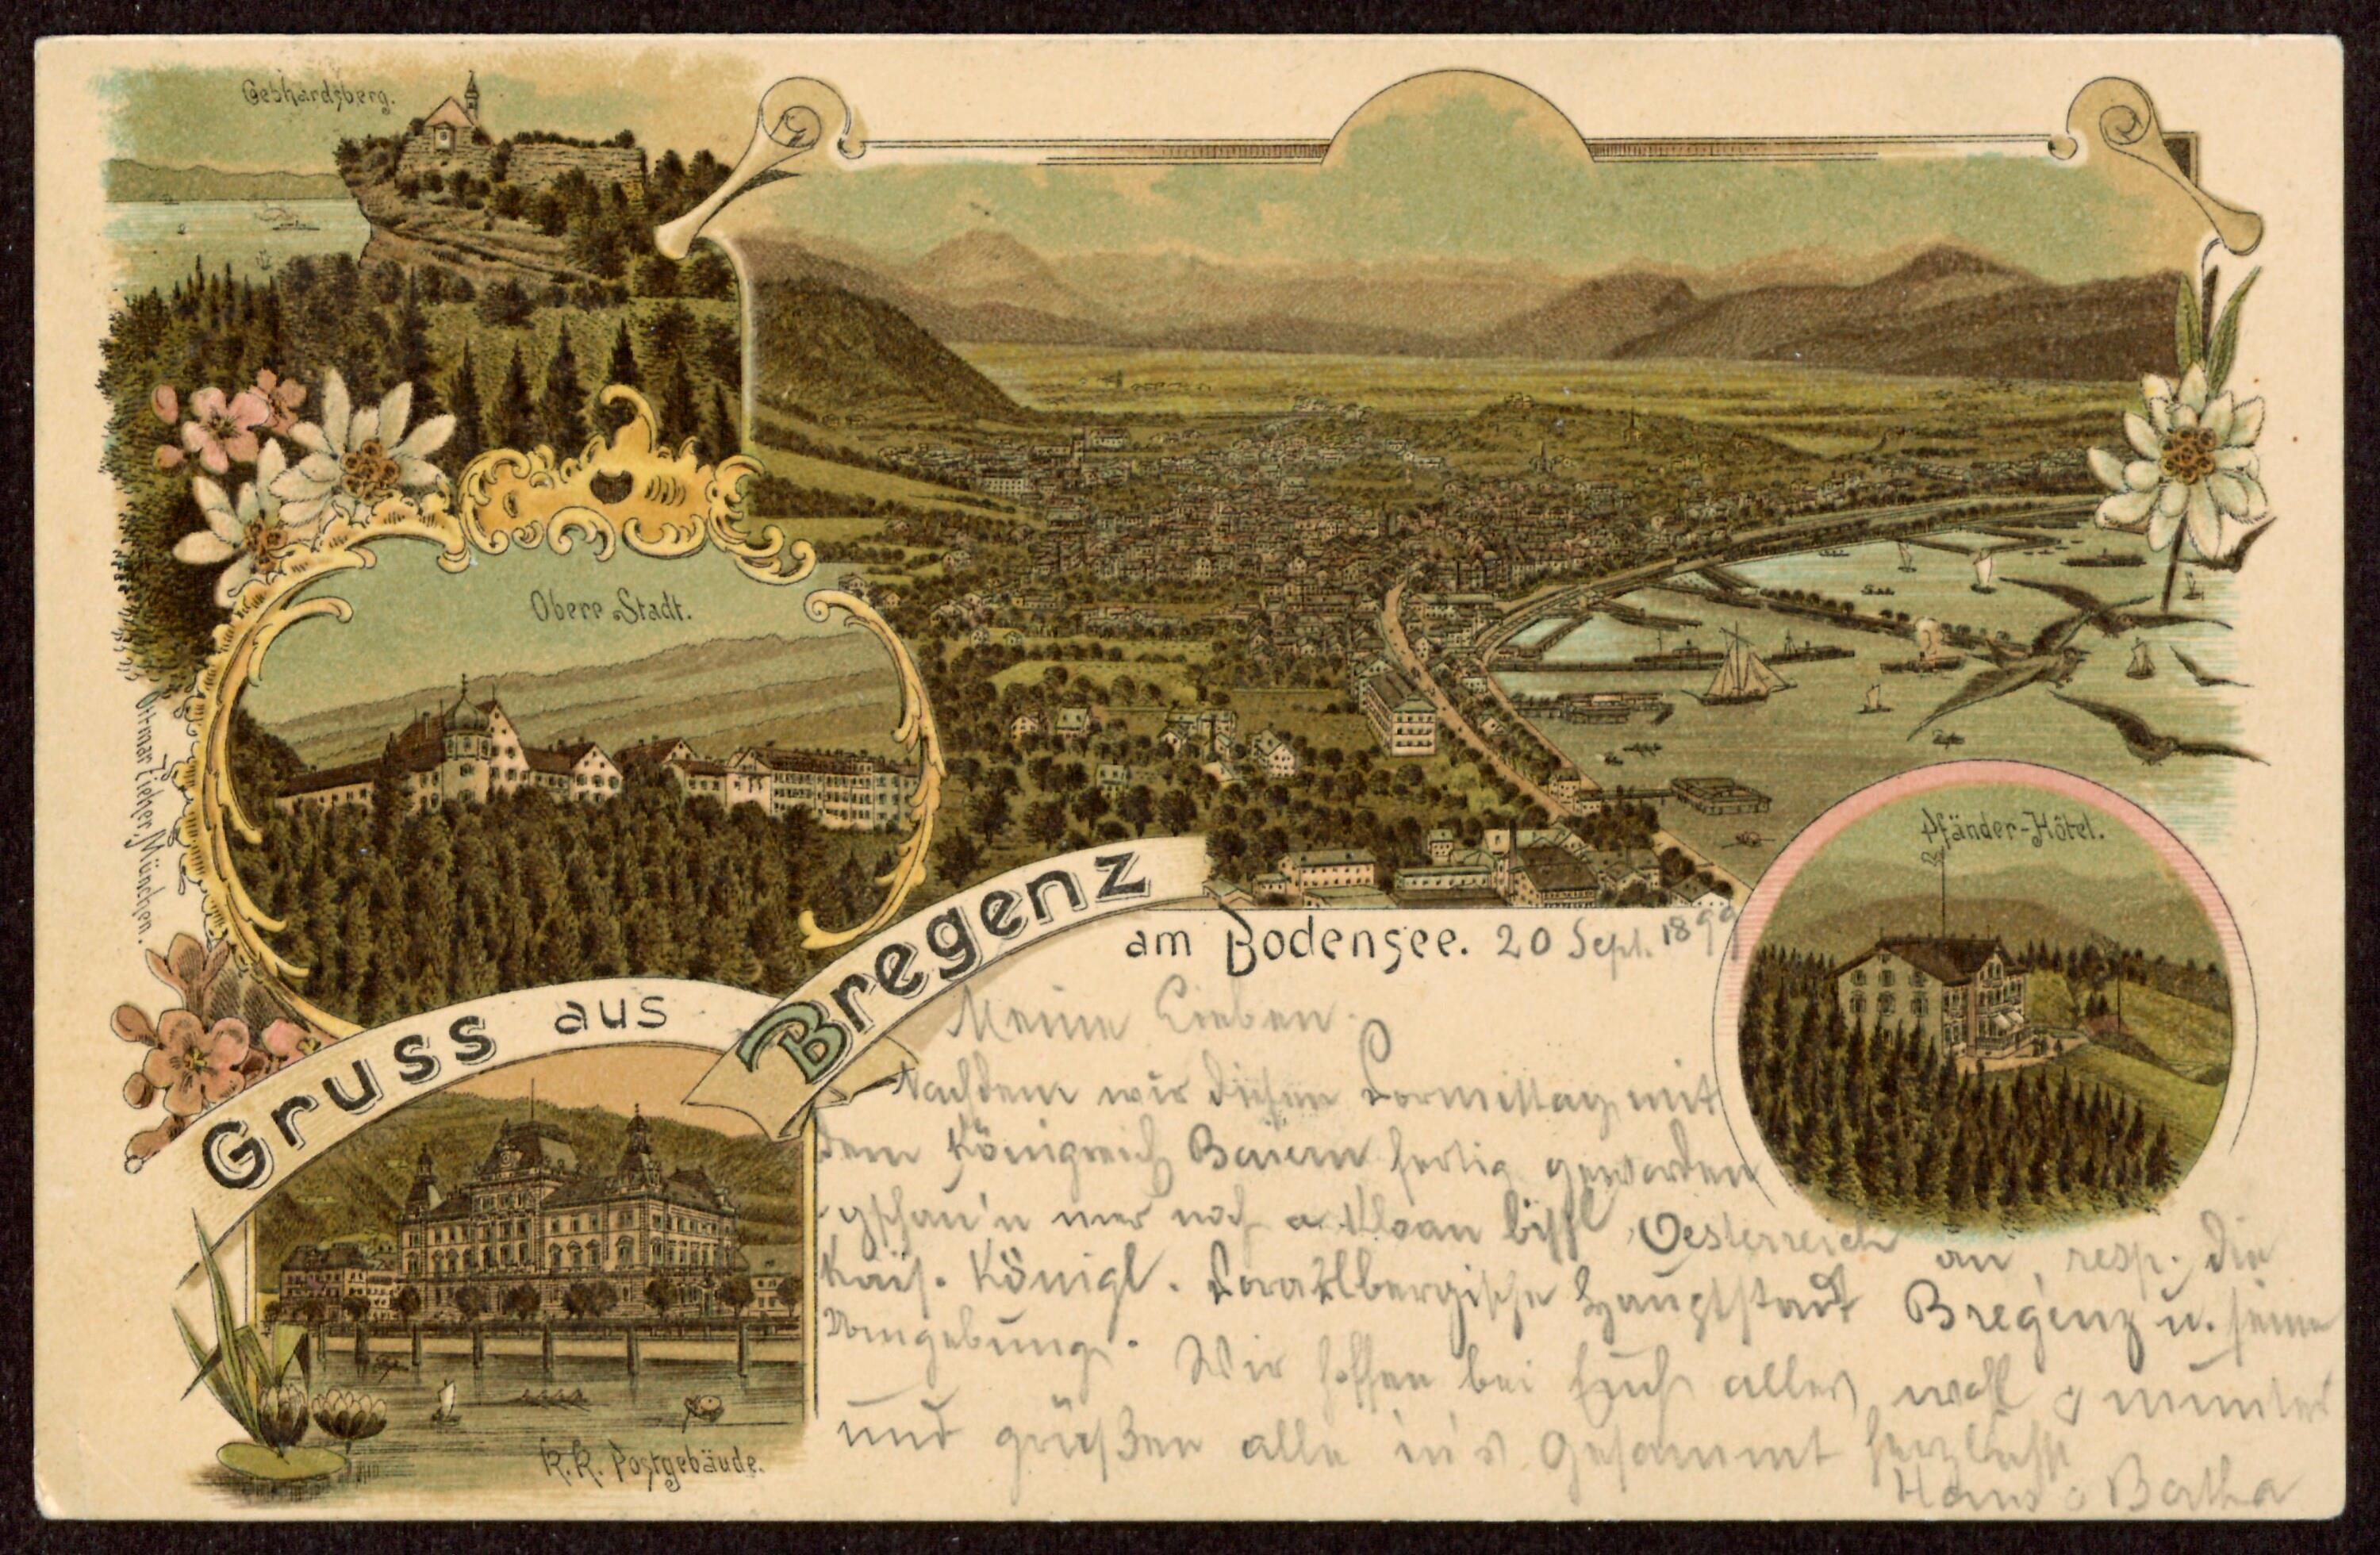 Gebhardsberg.
Obere Stadt.
Ottmar Zieher, München.
Pfänder-Hôtel.
Gruss aus Bregenz
am Bodensee. 20 Sept. 1899
Meine Lieben.
Nachdem wir diesen Vormittag mit
dem Königreich Baiern fertig geworden
gschau'n mer noch a kloan bissl Oesterreich an, resp. die
Kais. Königl. Vorarlbergische Hauptstadt Bregenz u. seine
Umgebung. Wir hoffen bei Euch alles wohl & munter
und grüßen alle in's Gesammt herzlichst
Hans & Bertha
K.K. Postgebäude.